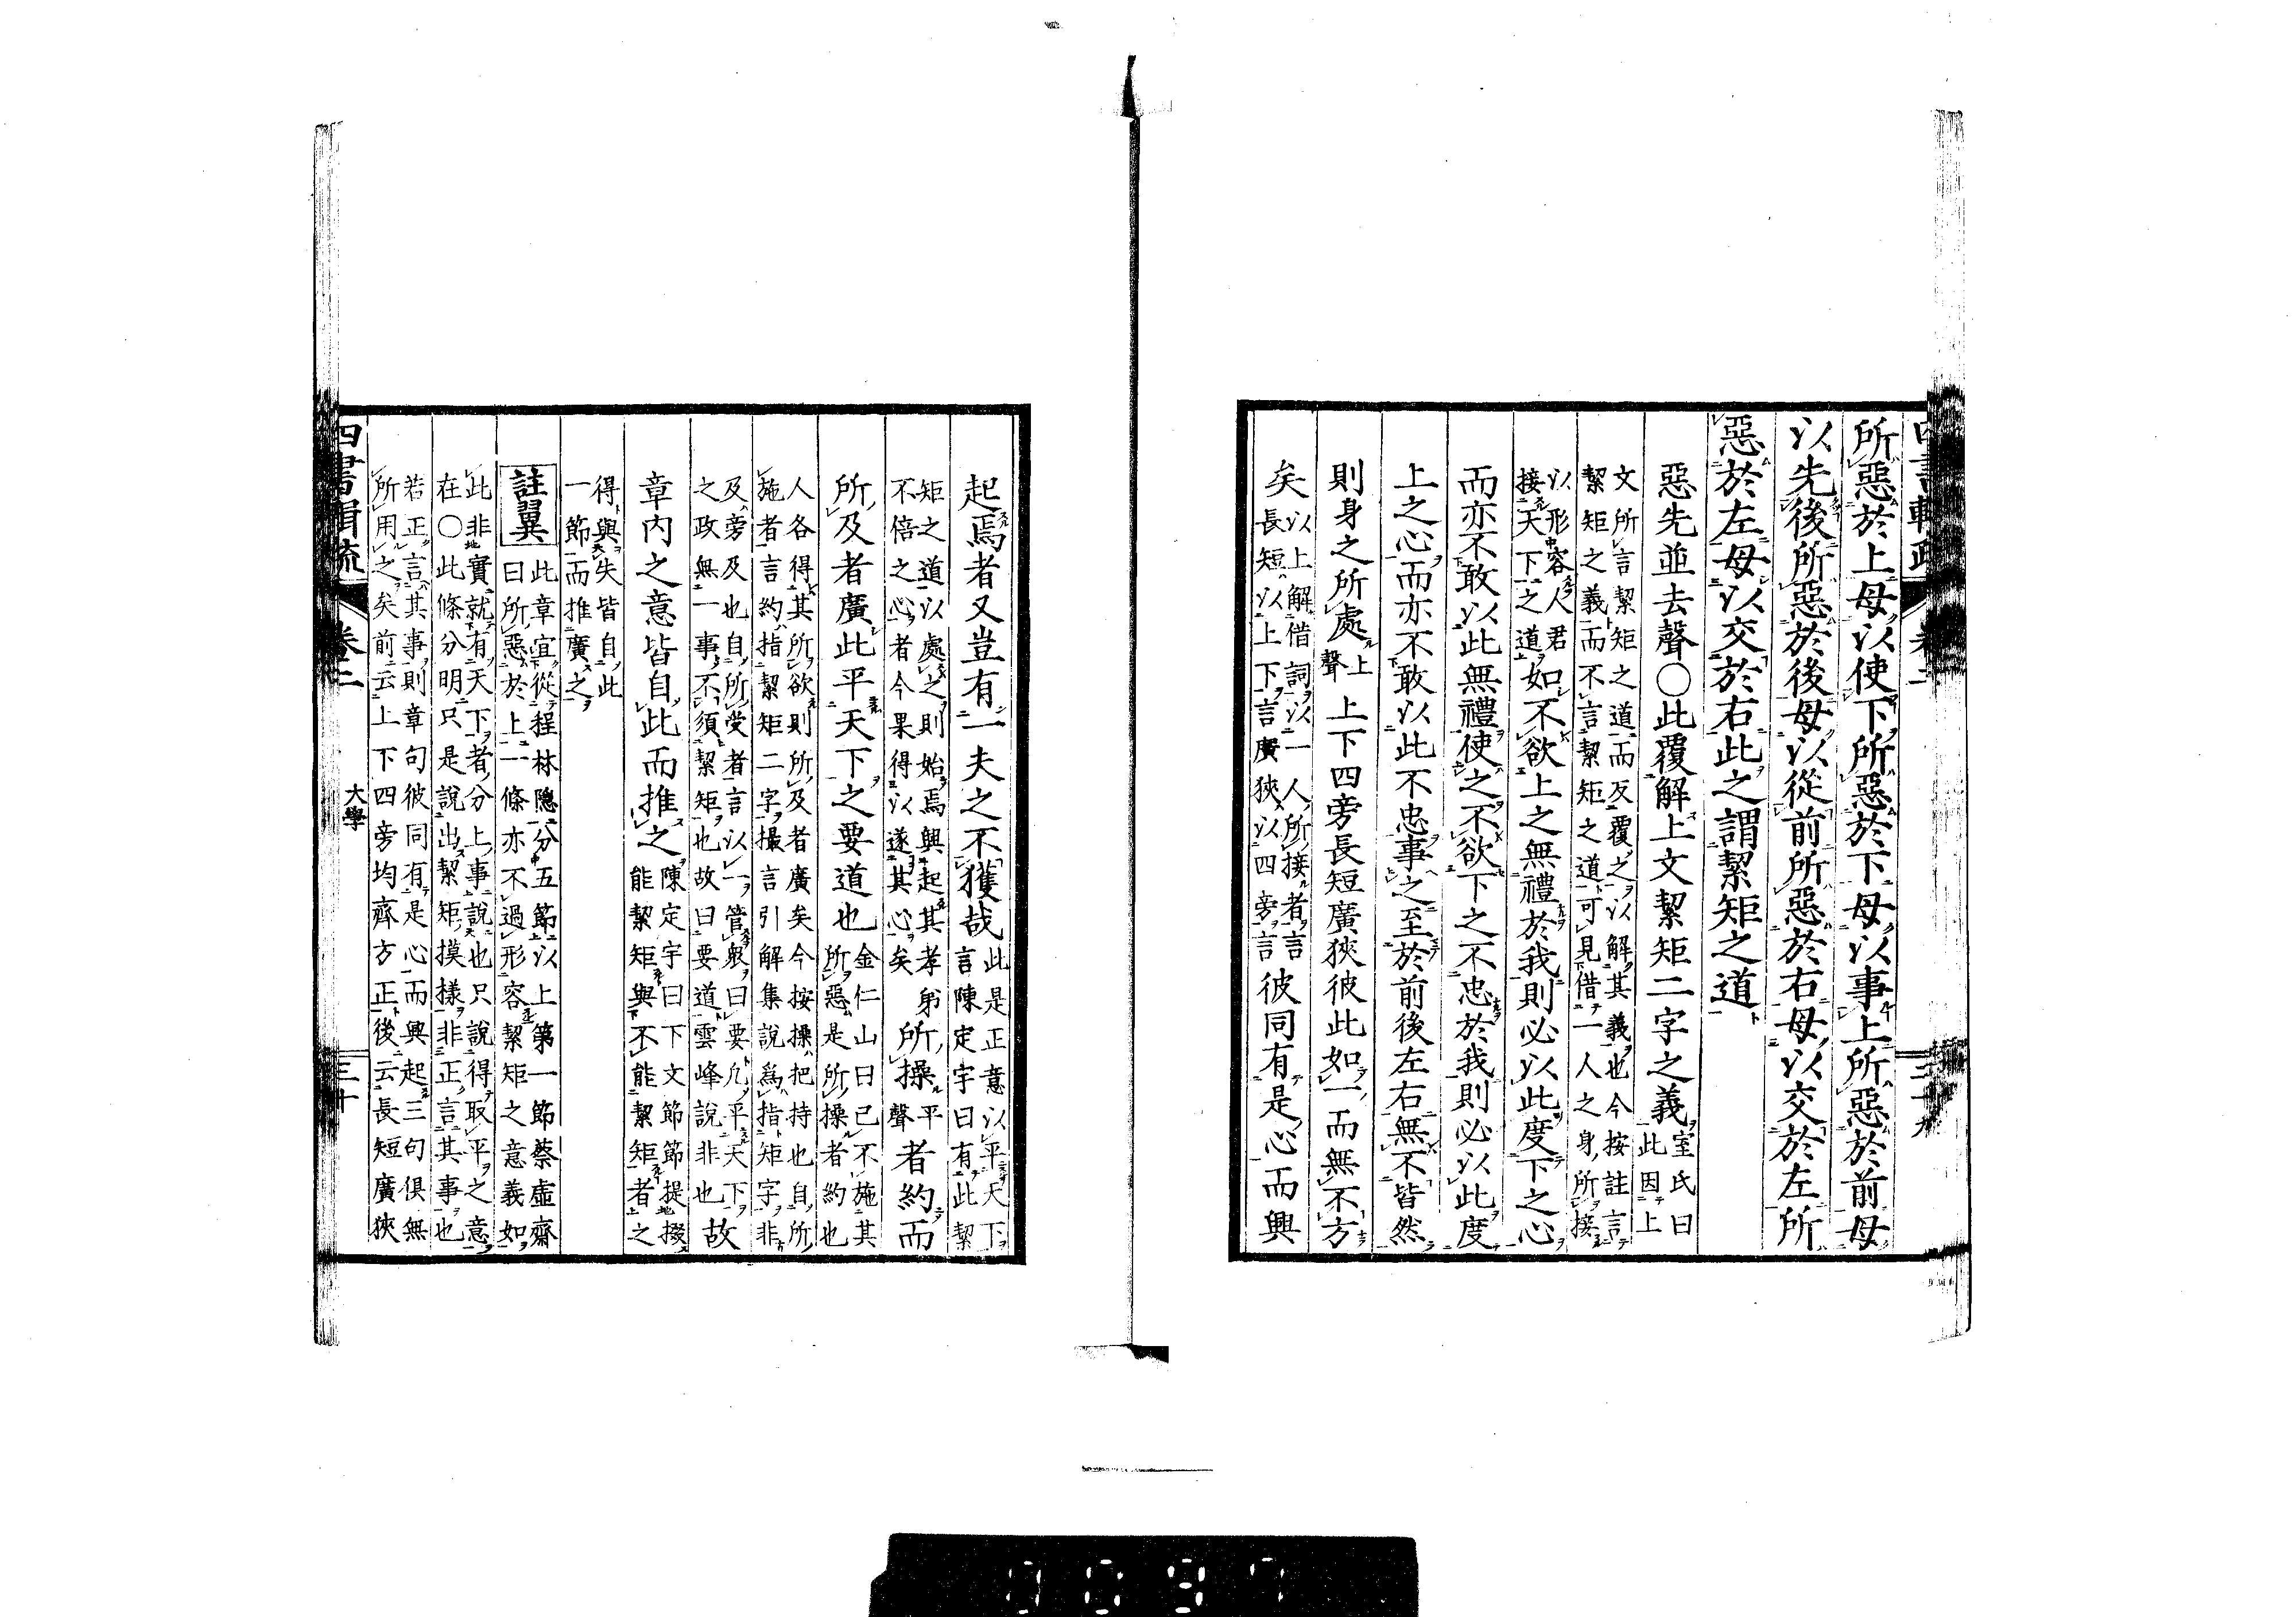 所惡於上毋以使下所惡於下毋以事上所惡於前毋
以先後所惡於後毋以從前所惡於右毋以交於左所
惡於左毋以交於右此之謂絜矩之道
惡先並去聲〇此覆解上文絜矩二字之義室氏曰此因上
文所言絜矩之道而反覆之以解其義也今按註言
絜矩之義而不言絜矩之道可見借一人之身所接
以形容人君
接天下之道如不欲上之無禮於我則必以此度下之心
而亦不敢以此無禮使之不欲下之不忠於我則必以此度
上之心而亦不敢以此不忠事之至於前後左右無不皆然
則身之所處上聲上下四旁長短廣狹彼此如一而無不方
矣以上解借詞以一人所接者言長短以上下言廣狹以四旁言彼同有是心而興
起焉者又豈有一夫之不獲哉此是正意以平天下言陳定宇曰有此絜
矩之道以處之則始焉興起其孝弟
不倍之心者今果得以遂其心矣所操平聲者約而
所及者廣此平天下之要道也金仁山曰己不施其所惡是所操者約也
人各得其所欲則所及者廣矣今按操把持也自所
施者言約指絜矩二字撮言引解集說爲指矩字非
及旁及也自所受者言以一管衆曰要凡平天下
之政無一事不須絜矩也故曰要道雲峰說非也故
章內之意皆自此而推之陳定宇曰下文節節提掇能絜矩與不能絜矩者之
得與失皆自此
一節而推廣之
註翼此章宜從程林隱分五節以上第一節蔡虛齋
曰所惡於上一條亦不過形容絜矩之意義如
此非實就有天下者分上事說也只說得取平之意
在〇此條分明只是說出絜矩摸樣非正言其事也
若正言其事則章句彼同有是心而興起三句俱無
所用之矣前云上下四旁均齊方正後云長短廣狹
四書輯疏 卷二 大學 三十